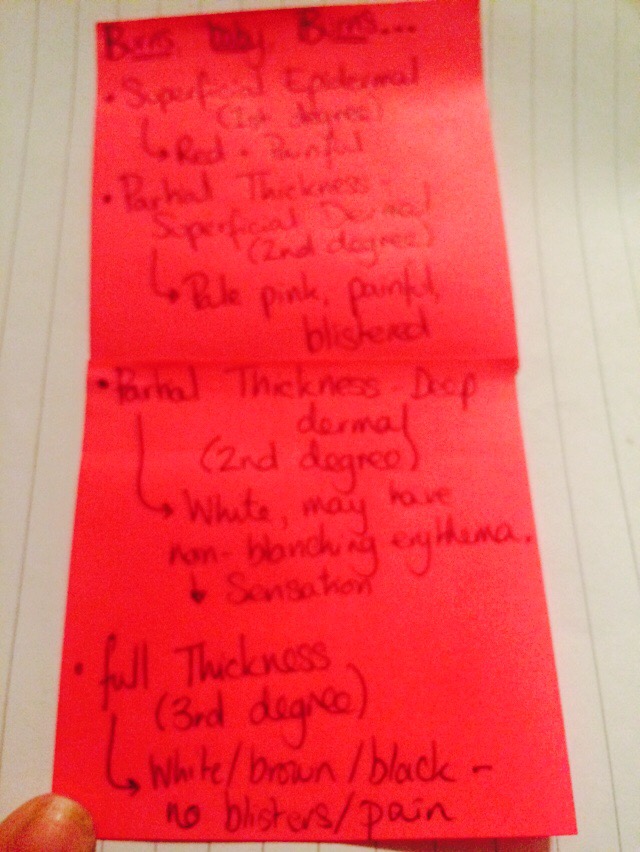 Burns Baby Burns...
• Superficial Epidermal
(1st degree)
↳ Red + Painful
• Partial Thickness -
Superficial Dermal
(2nd degree)
↳ Pale pink, painful,
blistered
• Partial Thickness - Deep
dermal
(2nd degree)
↳ White, may have
non-blanching erythema.
↓ Sensation
• full Thickness
(3rd degree)
↳ White/brown/black -
no blisters/pain